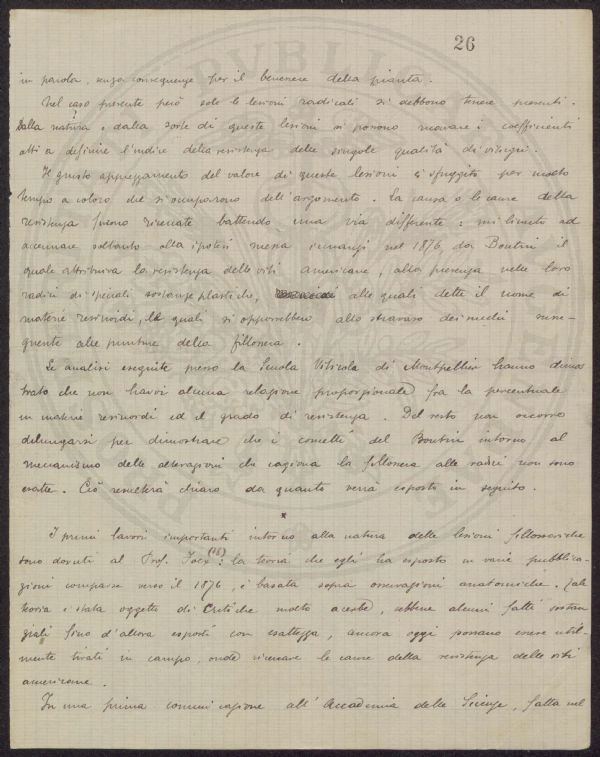 26
in parola, senza conseguenze per il benessere della pianta.
Nel caso presente però solo le lesioni radicali si debbono tenere presenti.
Dalla natura e dalla sorte di queste lesioni si possono ricavare i coefficienti
atti a definire l'indice della resistenza delle singole qualità di vitigni.
Il giusto apprezzamento del valore di queste lesioni è sfuggito per molto
tempo a coloro che si occuparono dell'argomento. La causa o le cause della
resistenza furono ricercate battendo una via differente: mi limito ad
accennare soltanto alla ipotesi messa innanzi nel 1876 da Boutin il
quale attribuiva la resistenza delle viti americane, alla presenza nelle loro
radici di speciali sostanze plastiche, alle quali dette il nome di
materie resinoidi, le quali si opporrebbero allo stravaso dei succhi susse-
guente alle punture della fillossera.
Le analisi eseguite presso la Scuola Viticola di Montpellier hanno dimos
trato che non havvi alcuna relazione proporzionale fra la percentuale
in materie resinoidi ed il grado di resistenza. Del resto non occorre
dilungarsi per dimostrare che i concetti del Boutin intorno al
meccanismo delle alterazioni che cagiona la fillossera alle radici non sono
esatte. Ciò resulterà chiaro da quanto verrà esposto in seguito.
x
I primi lavori importanti intorno alla natura delle lesioni fillosseriche
sono dovuti al Prof. Foëx (16): la teoria che egli ha esposto in varie pubblica-
zioni comparse verso il 1876, è basata sopra osservazioni anatomiche. Tale
teoria è stata oggetto di critiche molto acerbe, sebbene alcuni fatti sostan
ziali fino d'allora esposti con esattezza, ancora oggi possano essere util-
mente tirati in campo, onde ricercare le cause della resistenza delle viti
americane.
In una prima comunicazione all'Accademia delle Scienze, fatta nel